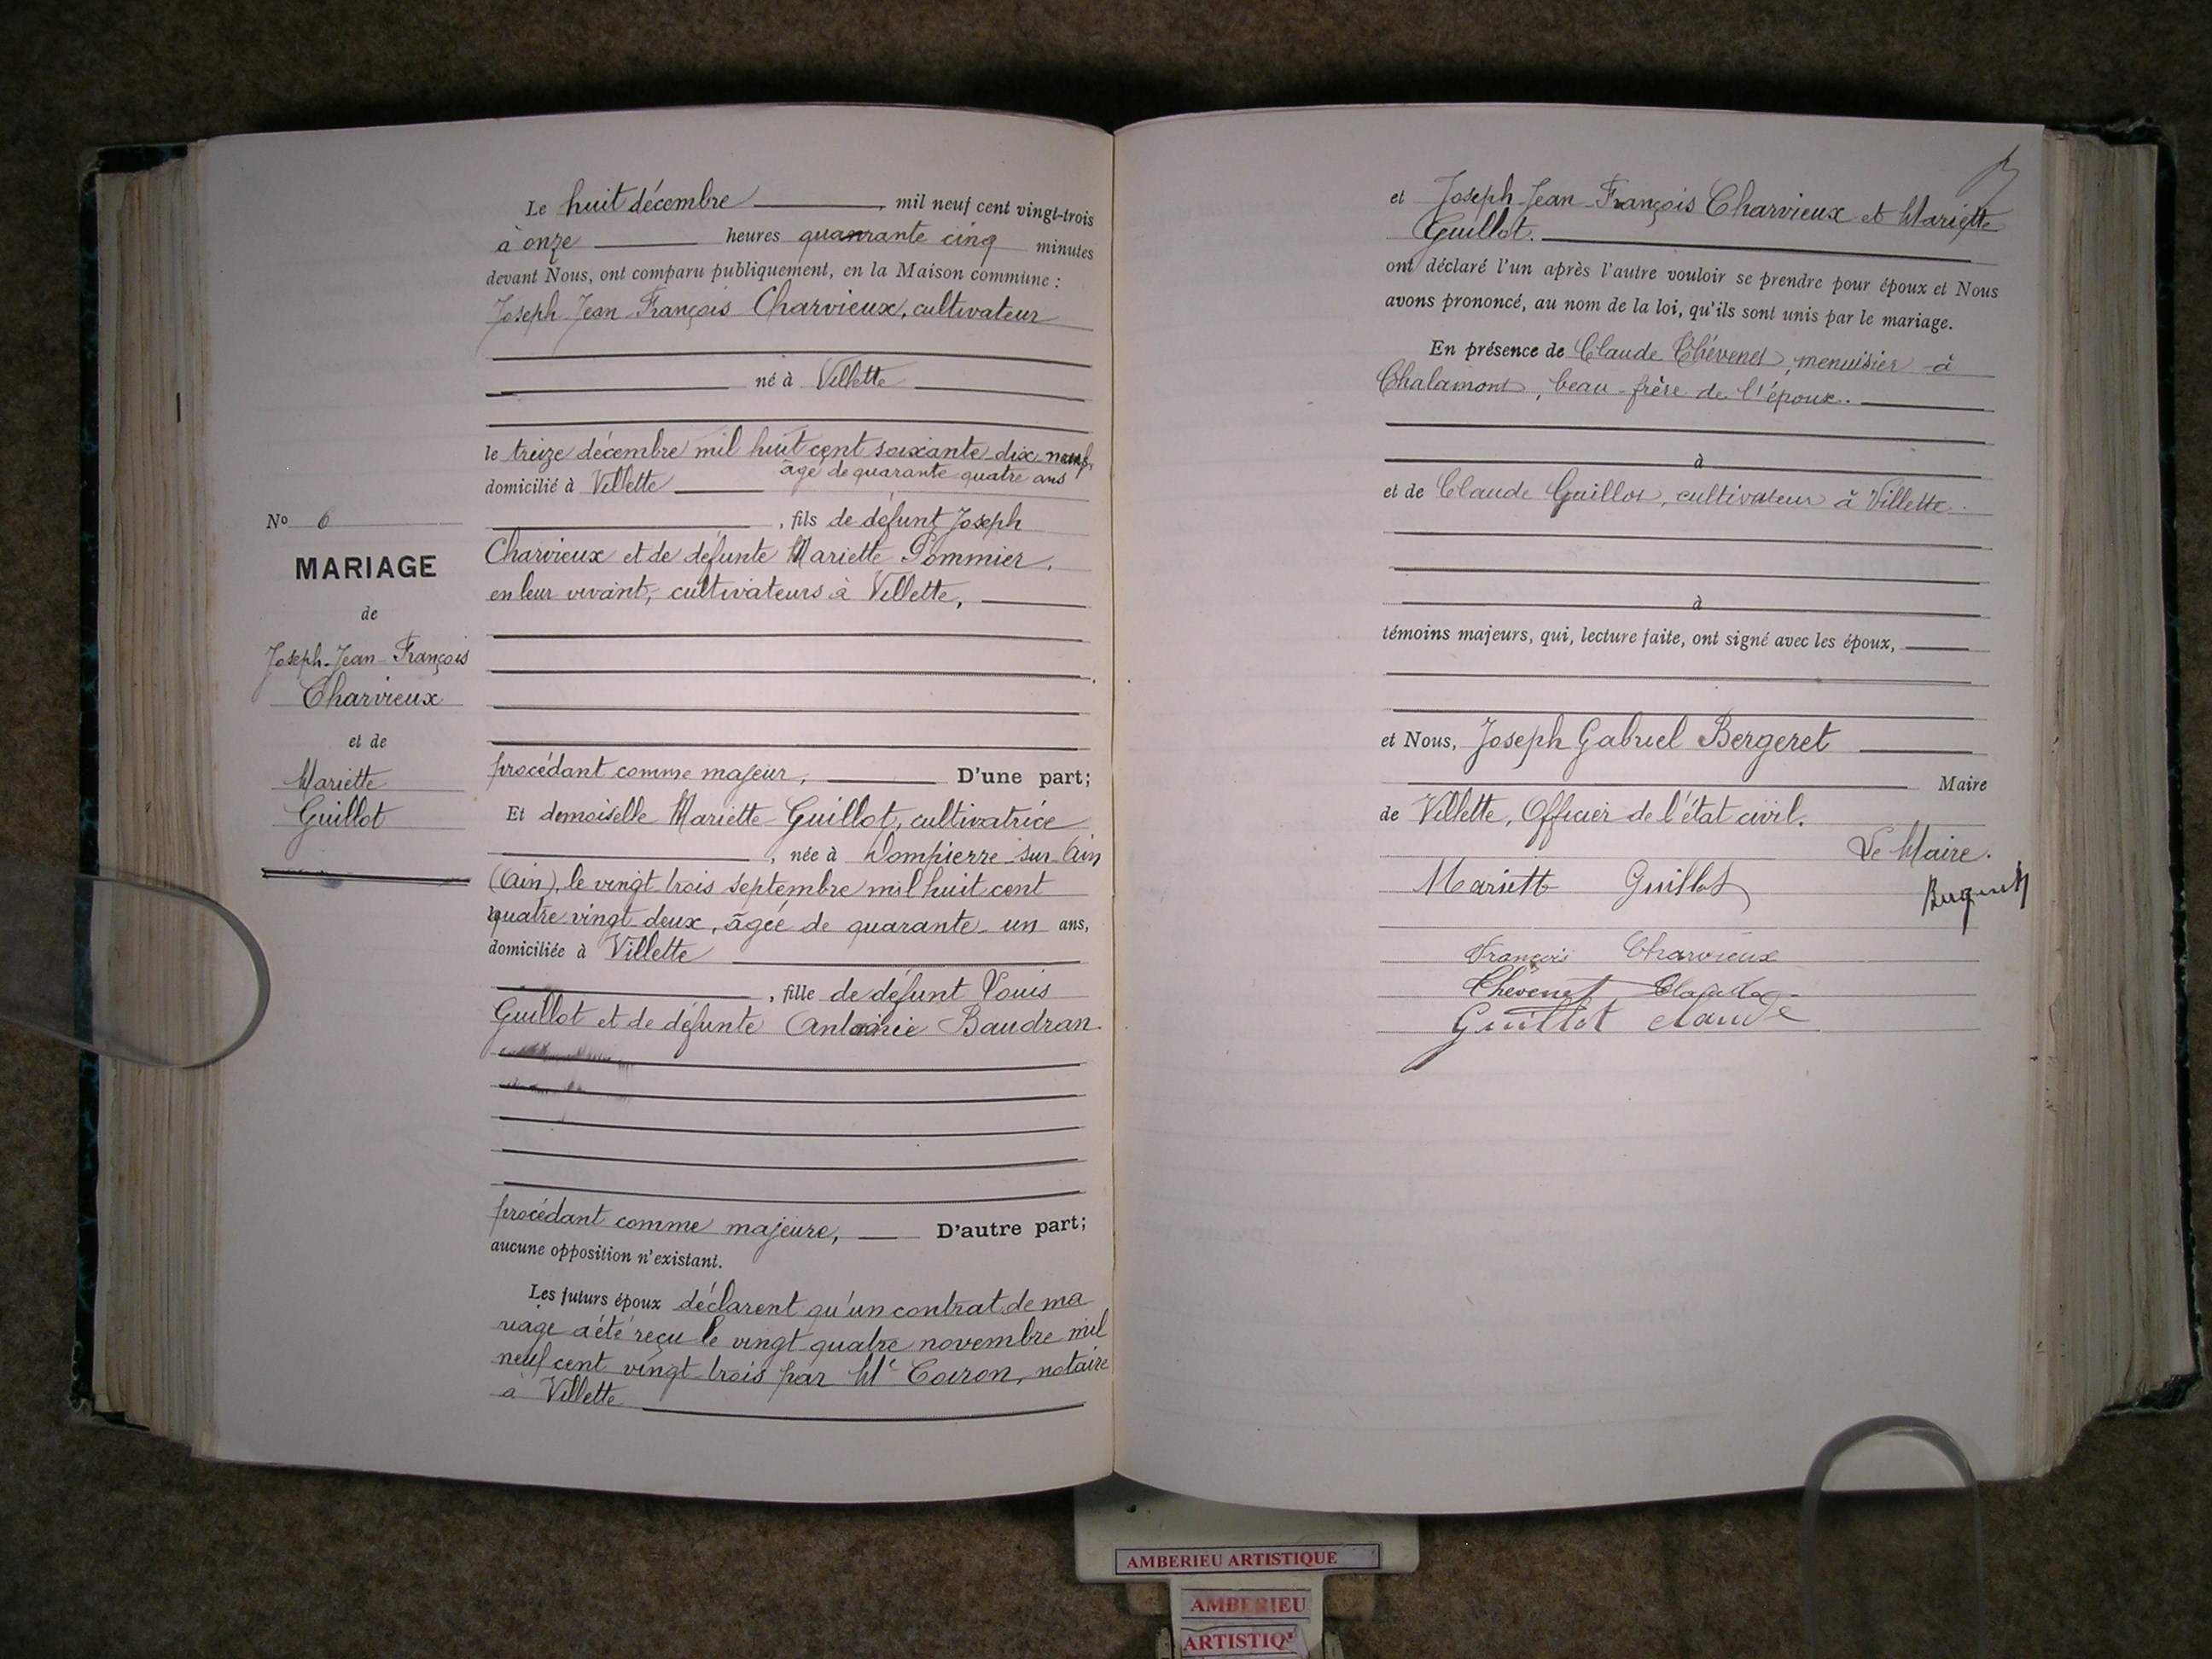 Le huit décembre, mil neuf cent vingt-trois
à onze heures quarante cinq minutes
devant Nous, ont comparu publiquement, en la Maison commune :
Joseph Jean François Charvieux, cultivateur
né à Villette
le treize décembre mil huit cent soixante dix neuf,
âgé de quarante quatre ans
domicilié à Villette
, fils de défunt Joseph
Charvieux et de défunte Mariette Pommier,
en leur vivant, cultivateurs à Villette,
procédant comme majeur, D'une part;
Et demoiselle Mariette Guillot, cultivatrice
, née à Dompierre sur Ain
(Ain), le vingt trois septembre mil huit cent
quatre vingt deux, âgée de quarante un ans,
domiciliée à Villette
, fille de défunt Louis
Guillot et de défunte Antoinie Baudran.
procédant comme majeure, D'autre part;
aucune opposition n'existant.
Les futurs époux déclarent qu'un contrat de ma
riage a été reçu le vingt quatre novembre mil
neuf cent vingt trois par Me Coiron, notaire
à Villette
No 6
MARIAGE
de
Joseph-Jean-François
Charvieux
et de
Mariette
Guillot
et Joseph Jean François Charvieux et Mariette
Guillot.
ont déclaré l'un après l'autre vouloir se prendre pour époux et Nous
avons prononcé, au nom de la loi, qu'ils sont unis par le mariage.
En présence de Claude Chévenet, menuisier à
Chalamont, beau-frère de l'époux.
à
et de Claude Guillot, cultivateur à Villette.
à
témoins majeurs, qui, lecture faite, ont signé avec les époux,
et Nous, Joseph Gabriel Bergeret
Maire
de Villette, Officier de l'état civil.
Le Maire.
Mariette Guillot
Bergeret
François Charvieux
Chévenet Claude
Guillot claude
AMBERIEU ARTISTIQUE
AMBERIEU
ARTISTIQ